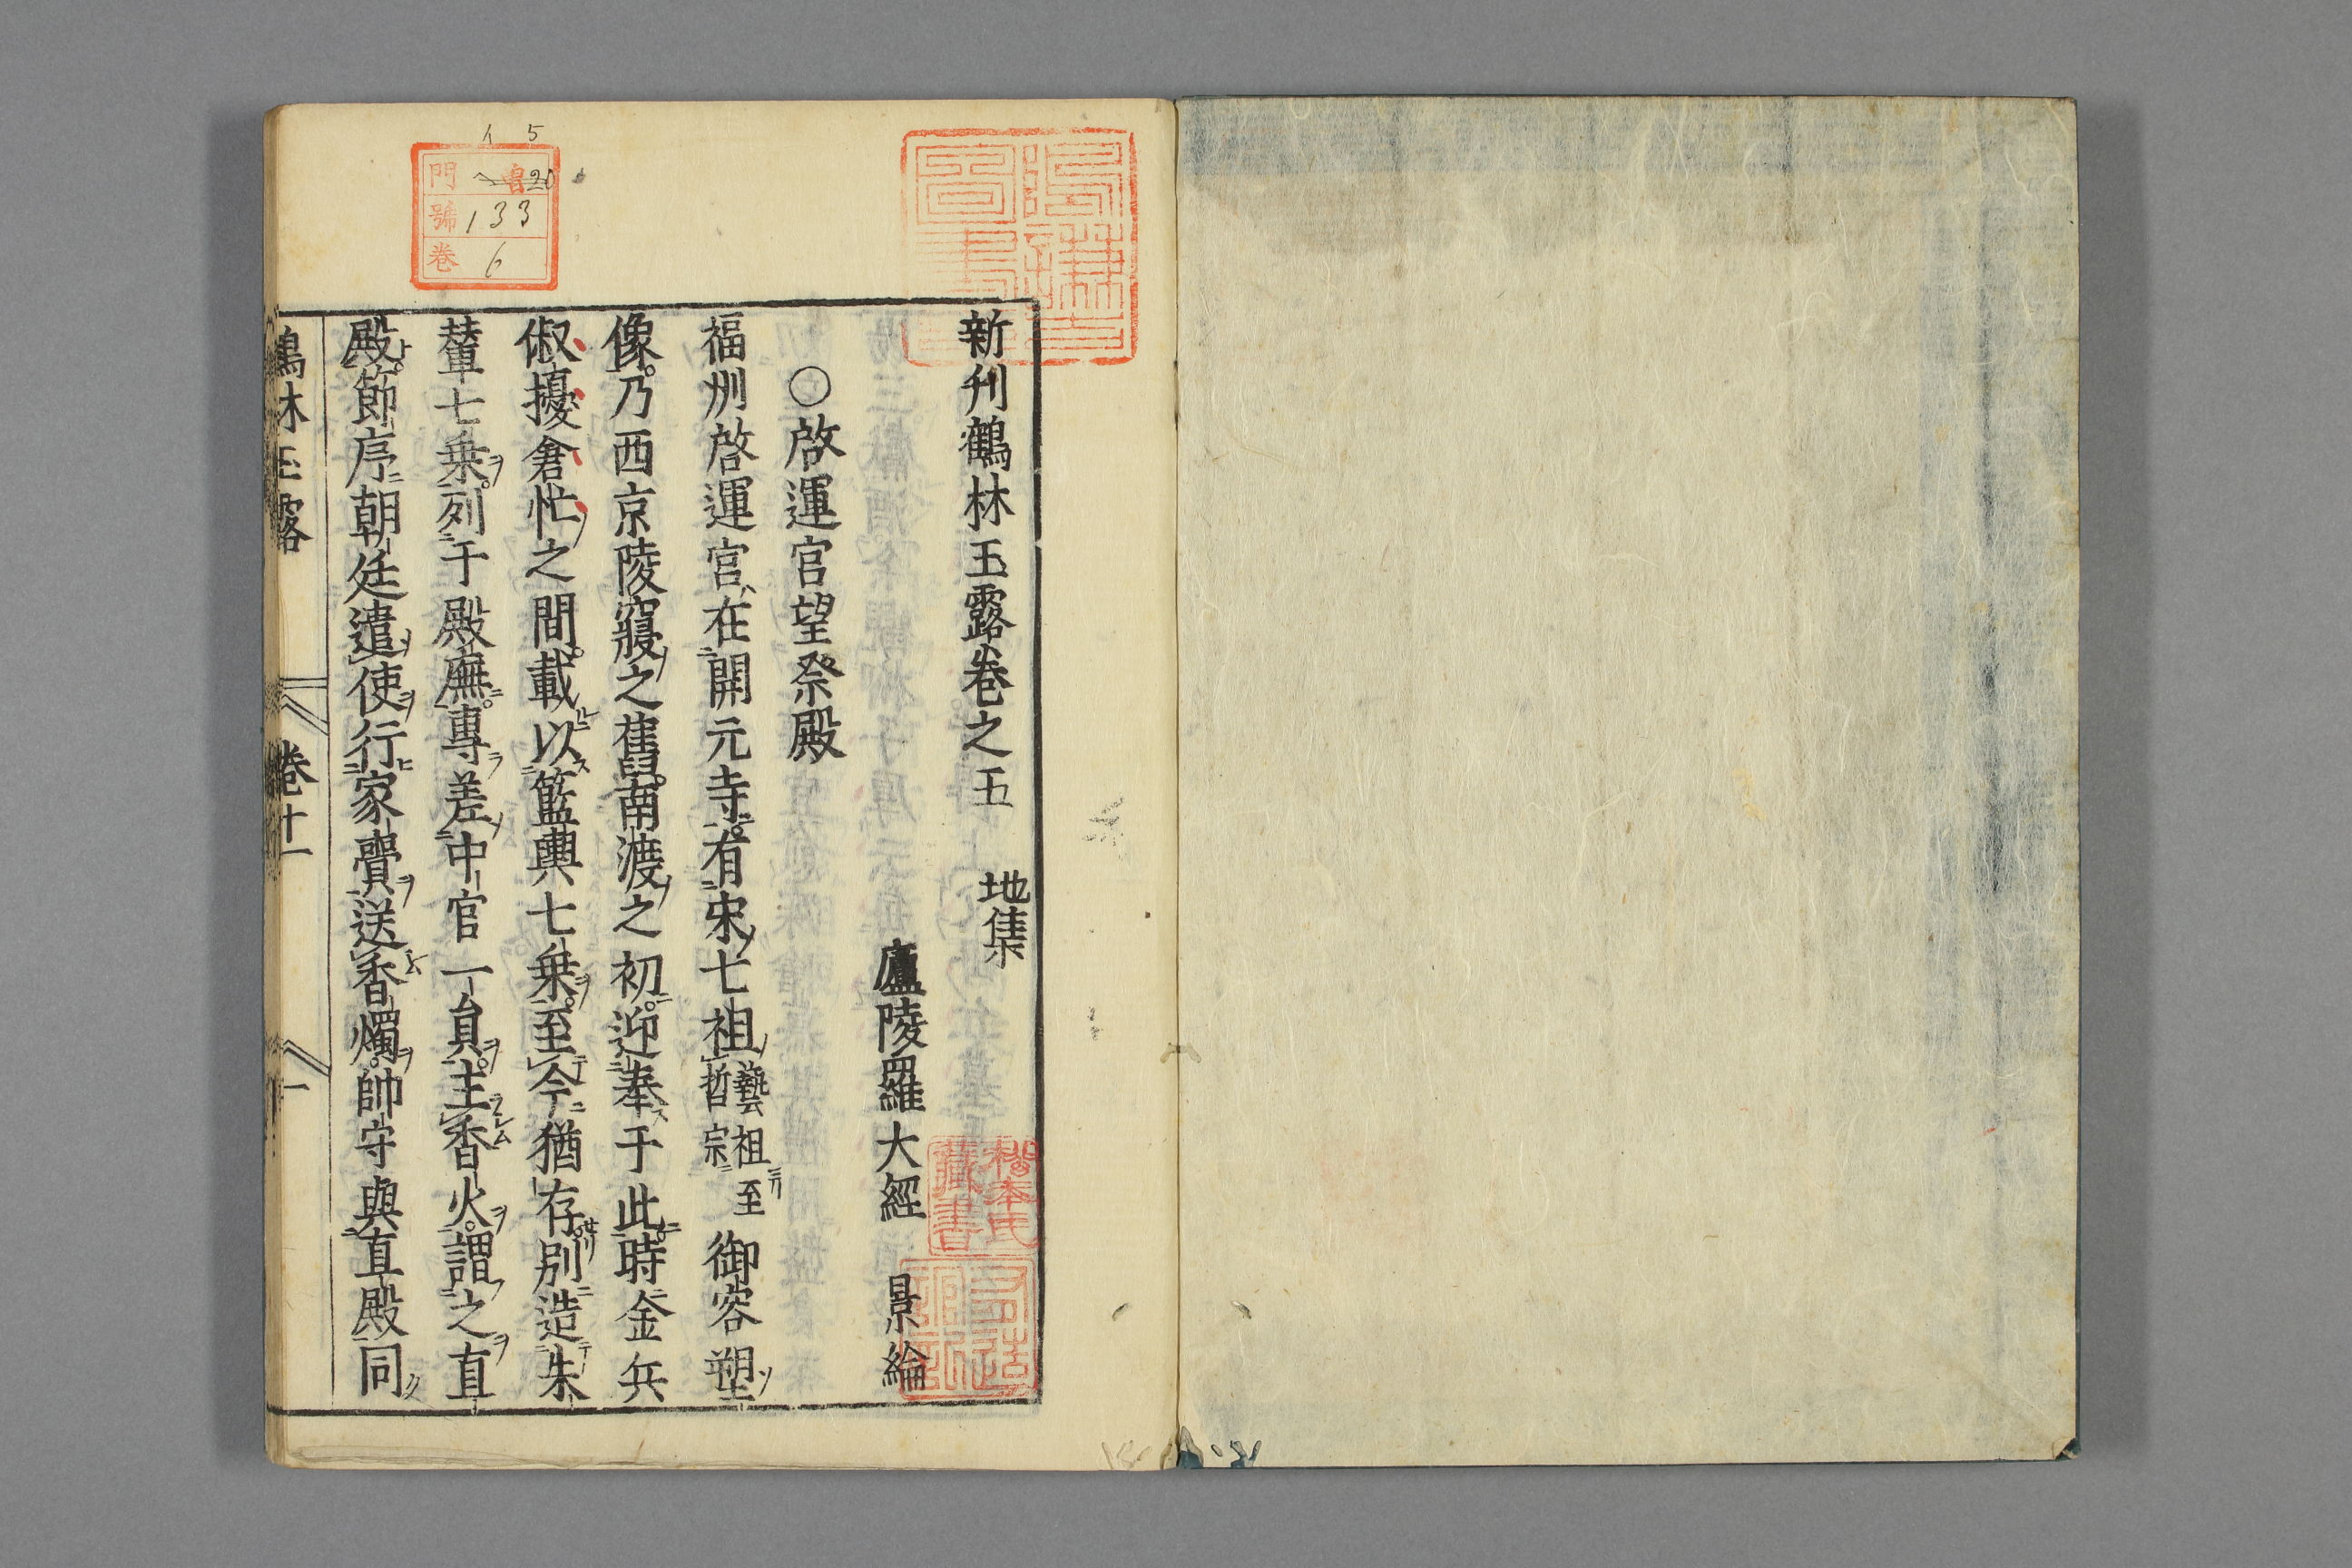 新刋鶴林玉露卷之五　地集
廬陵羅大經　景綸
○啓運宮望祭殿
福州啓運宮在開元寺有宋七祖藝祖至哲宗御容塑
像乃西京陵寢之舊南渡之初迎奉于此時金兵
俶擾倉忙之間載以籃輿七乗至今猶存別造朱
輦七乗列于殿廡專差中官一員主香火謂之直
殿節序朝廷遣使行家賷送香燭帥守與直殿同
鶴林玉露　卷十一　一
門 20
號 133
卷 6
藏書